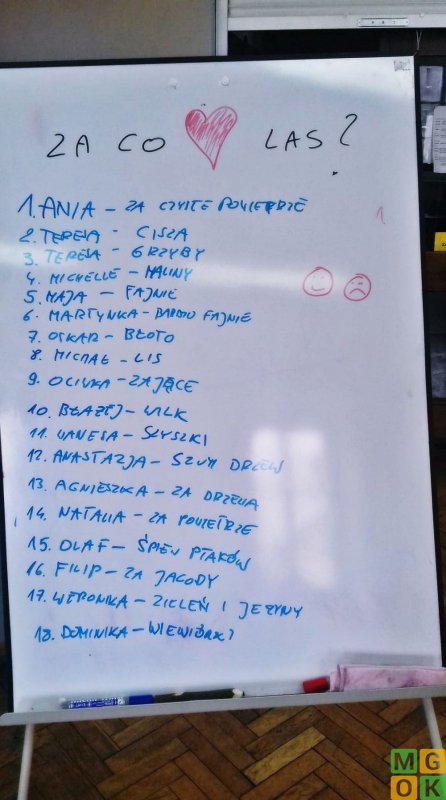 ZA CO LAS?
1. ANIA - ZA CZYSTE POWIETRZE
2. TERESA - CISZA
3. TERESA - GRZYBY
4. MICHELLE - MALINY
5. MAJA - FAJNIE
6. MARTYNKA - BARDZO FAJNIE
7. OSKAR - BŁOTO
8. MICHAŁ - LIS
9. OLIWKA - ZAJĄCE
10. BŁAŻEJ - WILK
11. WANESA - SZYSZKI
12. ANASTAZJA - SZUM DRZEW
13. AGNIESZKA - ZA DRZEWA
14. NATALIA - ZA POWIETRZE
15. OLAF - ŚPIEW PTAKÓW
16. FILIP - ZA JAGODY
17. WERONIKA - ZIELEŃ I JEŻYNY
18. DOMINIKA - WIEWIÓRKI
MG
OK